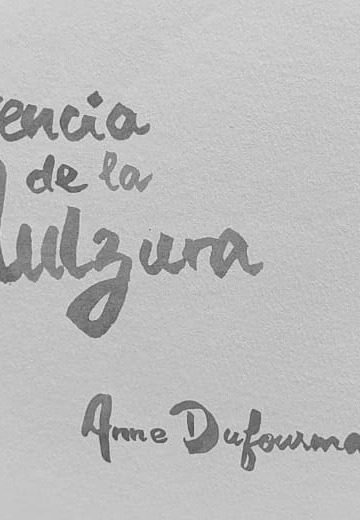 encia
de la
ulzura
Anne Dufourma